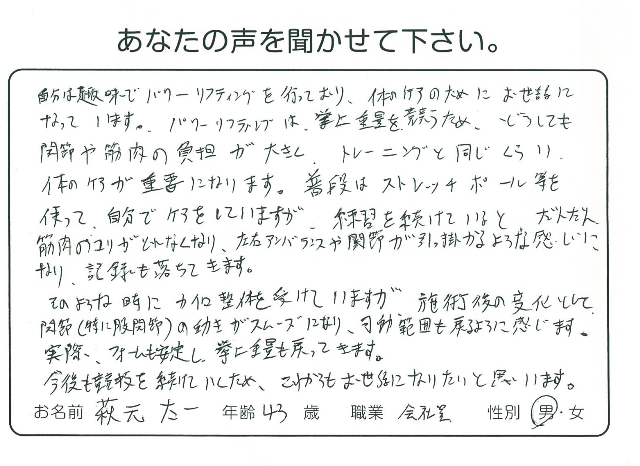 あなたの声を聞かせて下さい。
自分は趣味でパワーリフティングを行っており、体のケアのためにお世話に
なっています。パワーリフティングは、挙上重量を競うため、どうしても
関節や筋肉の負担が大きく、トレーニングと同じくらい、
体のケアが重要になります。普段はストレッチポール等を
使って、自分でケアをしていますが、練習を続けていると だんだん
筋肉のコリがとれなくなり、左右アンバランスや関節が引っ掛かるような感じに
なり、記録も落ちてきます。
そのような時にカイロ整体を受けていますが、施術後の変化として
関節(特に股関節)の動きがスムーズになり、可動範囲も戻るように感じます。
実際、フォームも安定し、挙上重量も戻ってきます。
今後も競技を続けていくため、これからもお世話になりたいと思います。
お名前 萩元 太一 年齢 43 歳 職業 会社員 性別 男・女